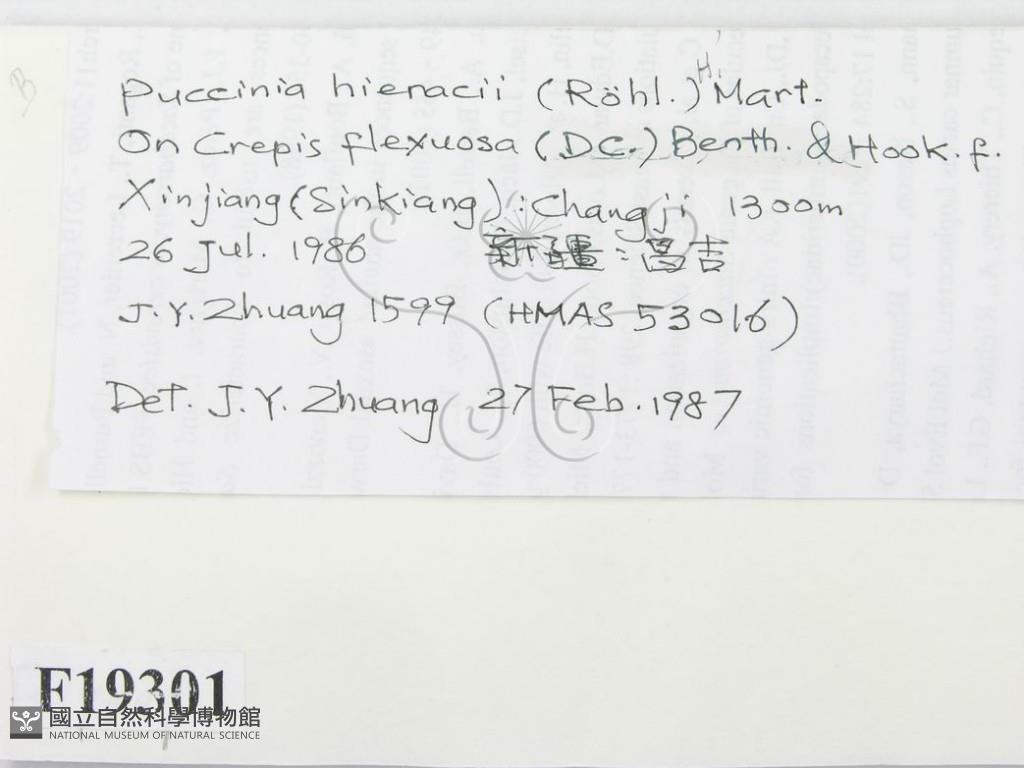 Puccinia hieracii (Röhl.) H. Mart.
On Crepis flexuosa (DC.) Benth. & Hook. f.
Xinjiang (Sinkiang) : Changji 1300m
26 Jul. 1986 新疆：昌吉
J. Y. Zhuang 1599 (HMAS 53016)
Det. J. Y. Zhuang 27 Feb. 1987
F19301
國立自然科學博物館
NATIONAL MUSEUM OF NATURAL SCIENCE